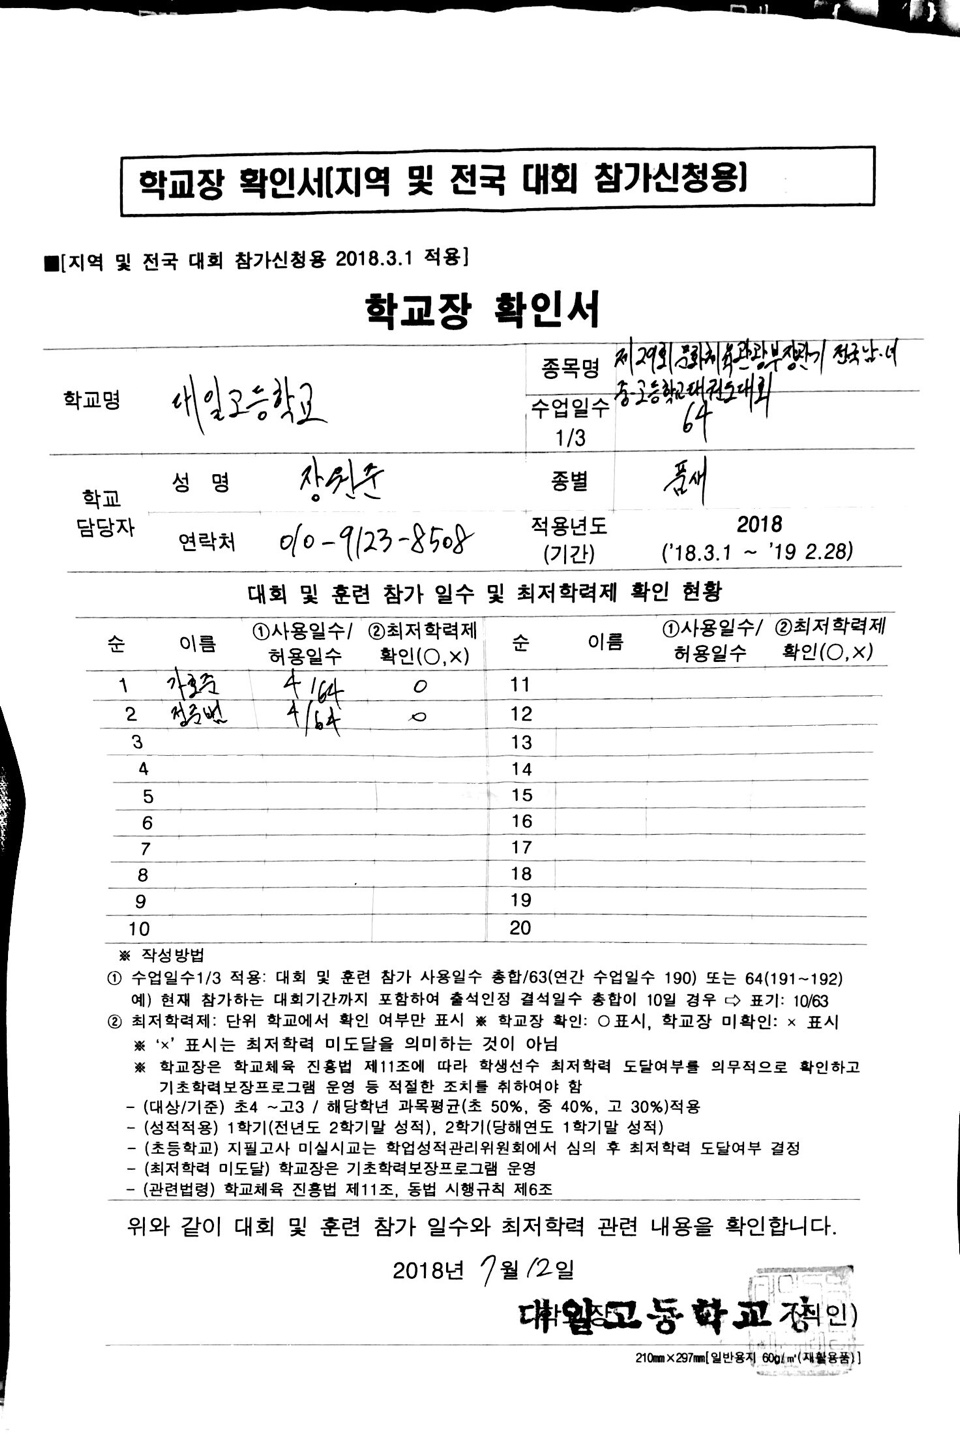 학교장 확인서[지역 및 전국 대회 참가신청용]
■[지역 및 전국 대회 참가신청용 2018.3.1 적용]
학교장 확인서
학교명 대일고등학교
종목명 제29회 문화체육관광부장관기 전국남·녀
중·고등학교태권도대회
수업일수 1/3 64
학교 담당자 성 명 장원준 종별 품새
연락처 010-9123-8508 적용년도 (기간) 2018 ('18.3.1 ~ '19 2.28)
대회 및 훈련 참가 일수 및 최저학력제 확인 현황
순 이름 ①사용일수/허용일수 ②최저학력제 확인(○,×) 순 이름 ①사용일수/허용일수 ②최저학력제 확인(○,×)
1 4/64 ○ 11
2 4/64 ○ 12
3 13
4 14
5 15
6 16
7 17
8 18
9 19
10 20
※ 작성방법
① 수업일수1/3 적용: 대회 및 훈련 참가 사용일수 총합/63(연간 수업일수 190) 또는 64(191~192)
예) 현재 참가하는 대회기간까지 포함하여 출석인정 결석일수 총합이 10일 경우 ⇨ 표기: 10/63
② 최저학력제: 단위 학교에서 확인 여부만 표시 ※ 학교장 확인: ○표시, 학교장 미확인: × 표시
※ '×' 표시는 최저학력 미도달을 의미하는 것이 아님
※ 학교장은 학교체육 진흥법 제11조에 따라 학생선수 최저학력 도달여부를 의무적으로 확인하고
기초학력보장프로그램 운영 등 적절한 조치를 취하여야 함
- (대상/기준) 초4 ~고3 / 해당학년 과목평균(초 50%, 중 40%, 고 30%)적용
- (성적적용) 1학기(전년도 2학기말 성적), 2학기(당해연도 1학기말 성적)
- (초등학교) 지필고사 미실시교는 학업성적관리위원회에서 심의 후 최저학력 도달여부 결정
- (최저학력 미도달) 학교장은 기초학력보장프로그램 운영
- (관련법령) 학교체육 진흥법 제11조, 동법 시행규칙 제6조
위와 같이 대회 및 훈련 참가 일수와 최저학력 관련 내용을 확인합니다.
2018년 7월 12일
대일고등학교장 (직인)
210㎜×297㎜[일반용지 60g/㎡(재활용품)]